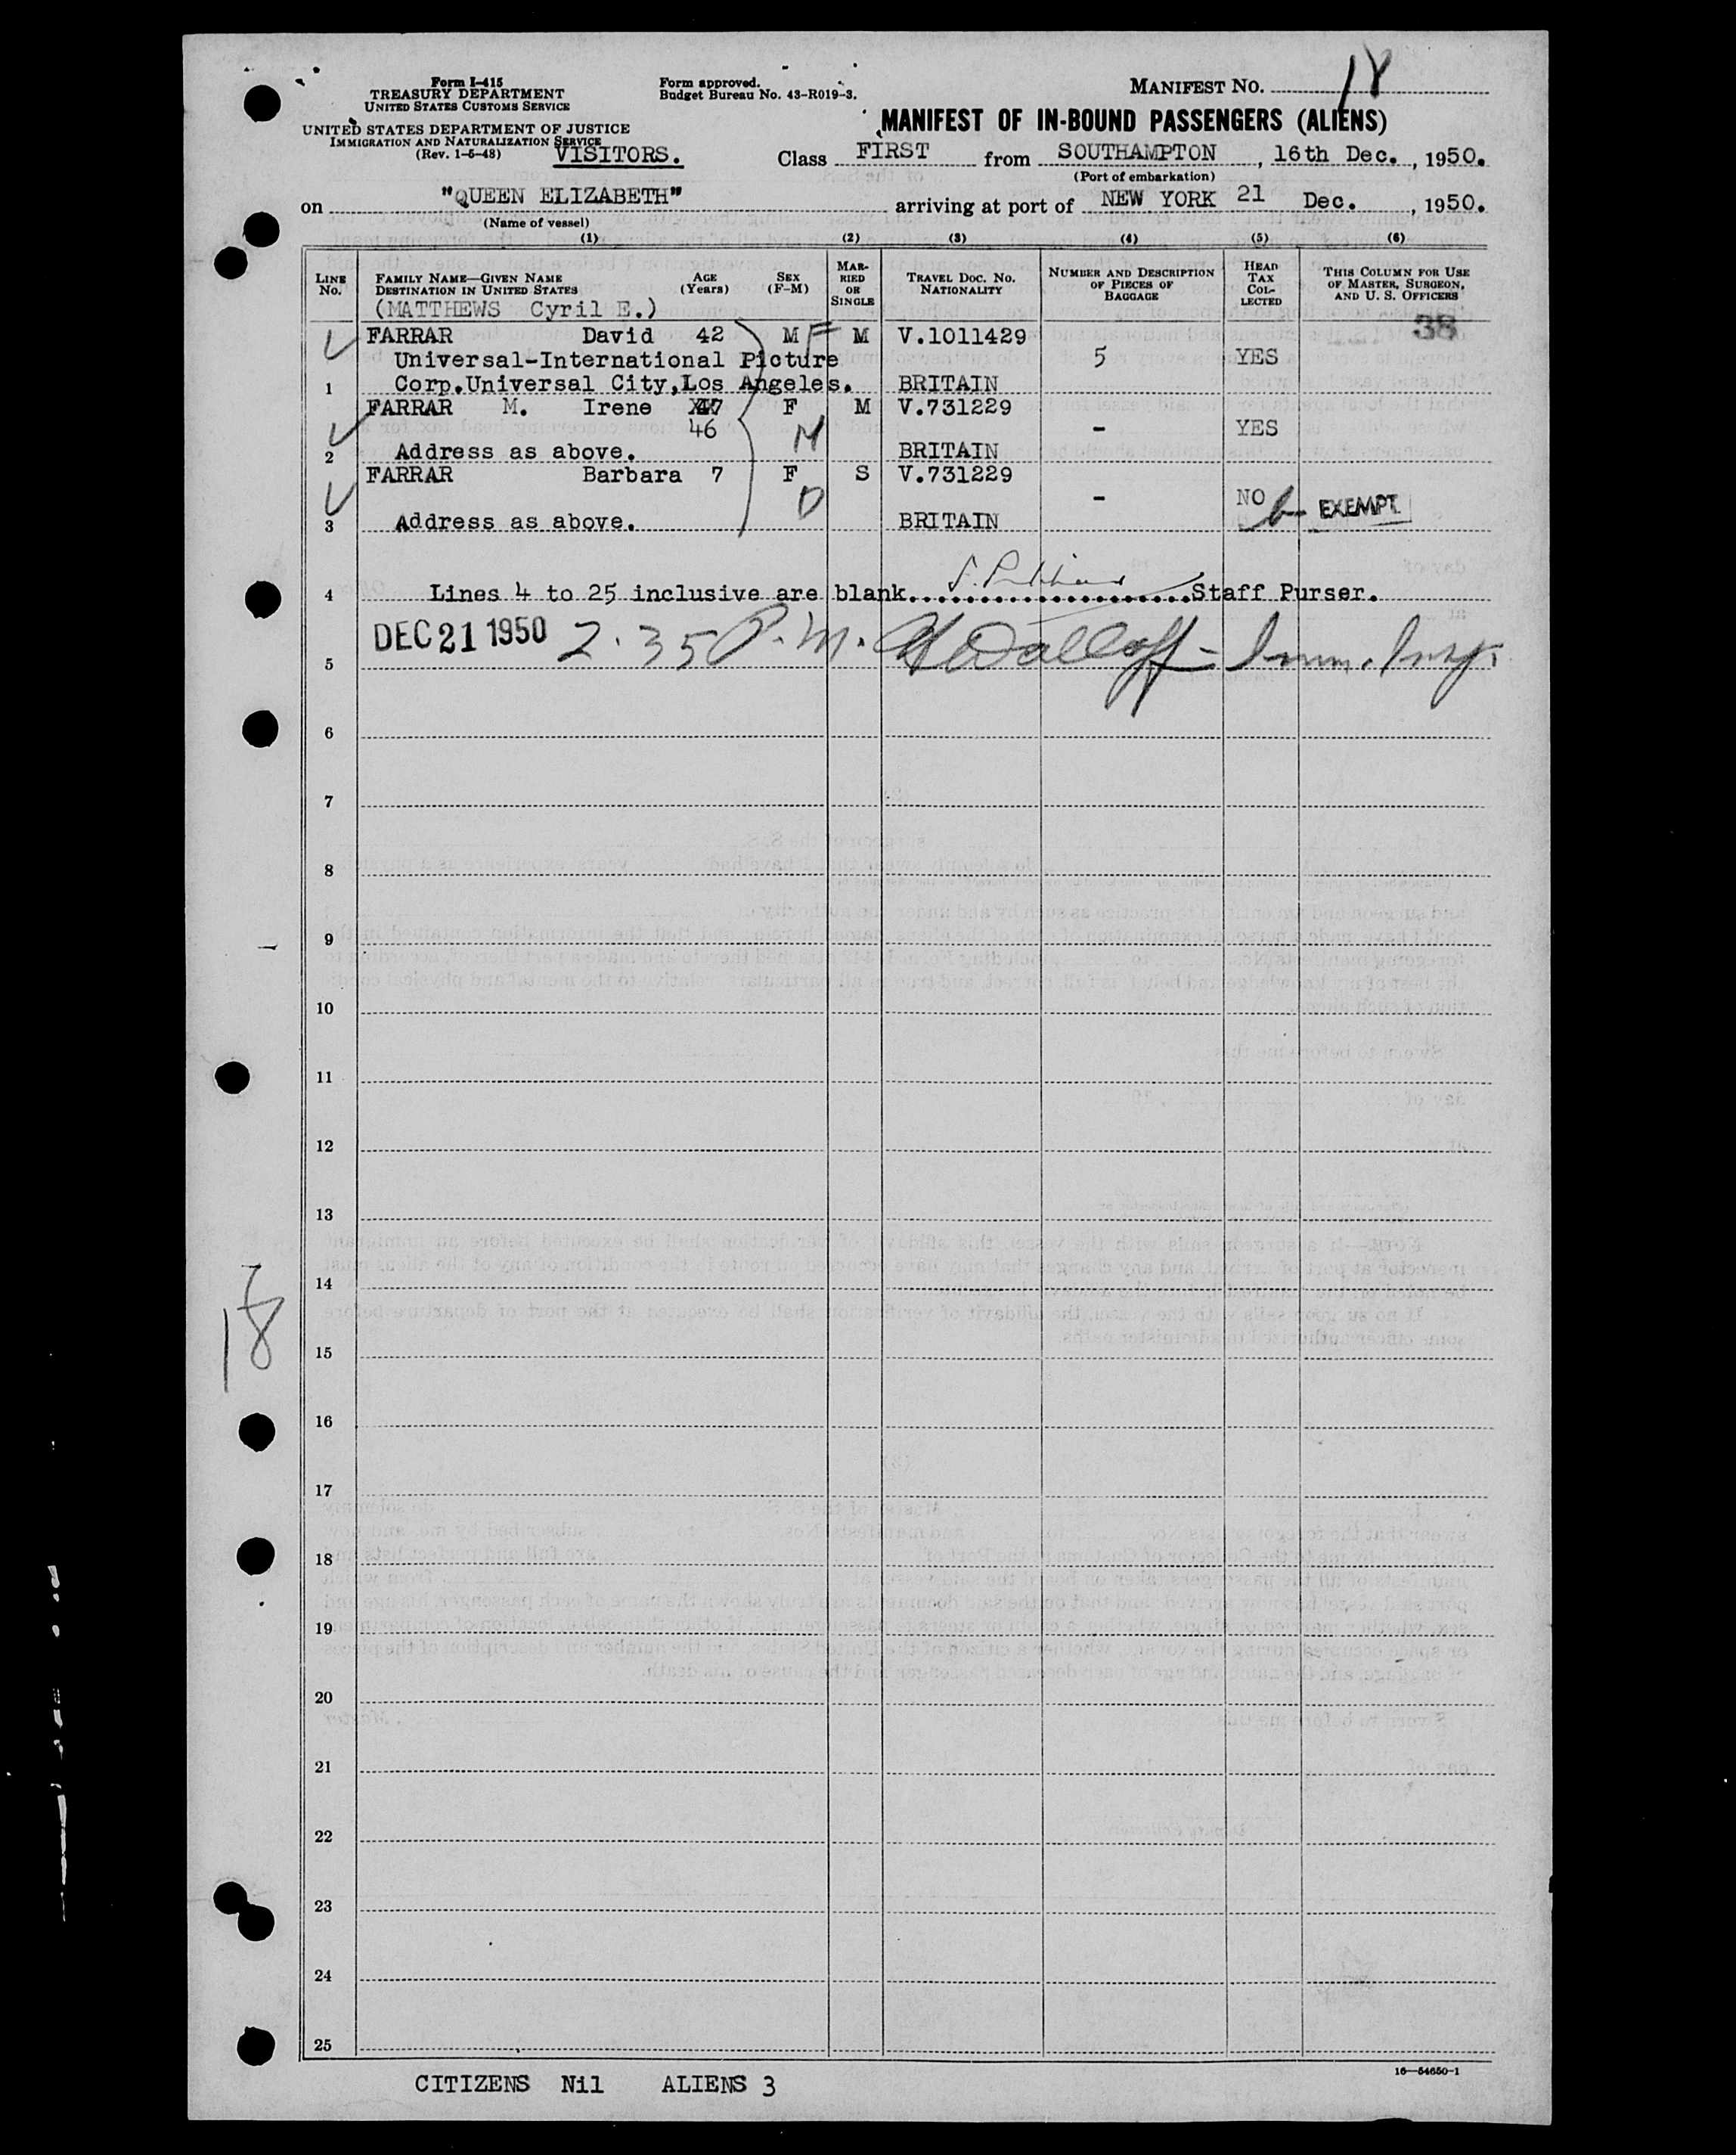 Form I-415
TREASURY DEPARTMENT
UNITED STATES CUSTOMS SERVICE
UNITED STATES DEPARTMENT OF JUSTICE
IMMIGRATION AND NATURALIZATION SERVICE
(Rev. 1-5-48) VISITORS.
Form approved.
Budget Bureau No. 43-R019-3.
MANIFEST NO. 18
MANIFEST OF IN-BOUND PASSENGERS (ALIENS)
Class FIRST from SOUTHAMPTON, 16th Dec., 1950.
(Port of embarkation)
on "QUEEN ELIZABETH" arriving at port of NEW YORK 21 Dec., 1950.
(Name of vessel)
(1) (2) (3) (4) (5) (6)
LINE NO.
FAMILY NAME—GIVEN NAME
DESTINATION IN UNITED STATES
AGE (Years)
SEX (F-M)
MARRIED OR SINGLE
TRAVEL DOC. NO.
NATIONALITY
NUMBER AND DESCRIPTION OF PIECES OF BAGGAGE
HEAD TAX COLLECTED
THIS COLUMN FOR USE OF MASTER, SURGEON, AND U. S. OFFICERS
(MATTHEWS Cyril E.)
38
FARRAR David 42 M F M V.1011429
Universal-International Picture 5 YES
1 Corp.Universal City,Los Angeles. BRITAIN
FARRAR M. Irene 47 F M V.731229
46 M - YES
2 Address as above. BRITAIN
FARRAR Barbara 7 F S V.731229
D - NO EXEMPT
3 Address as above. BRITAIN
4 Lines 4 to 25 inclusive are blank. Staff Purser.
DEC 21 1950 2.35 P.m. Imm. Insp.
5
6
7
8
9
10
11
12
13
14
18
15
16
17
18
19
20
21
22
23
24
25
16—54650-1
CITIZENS Nil ALIENS 3